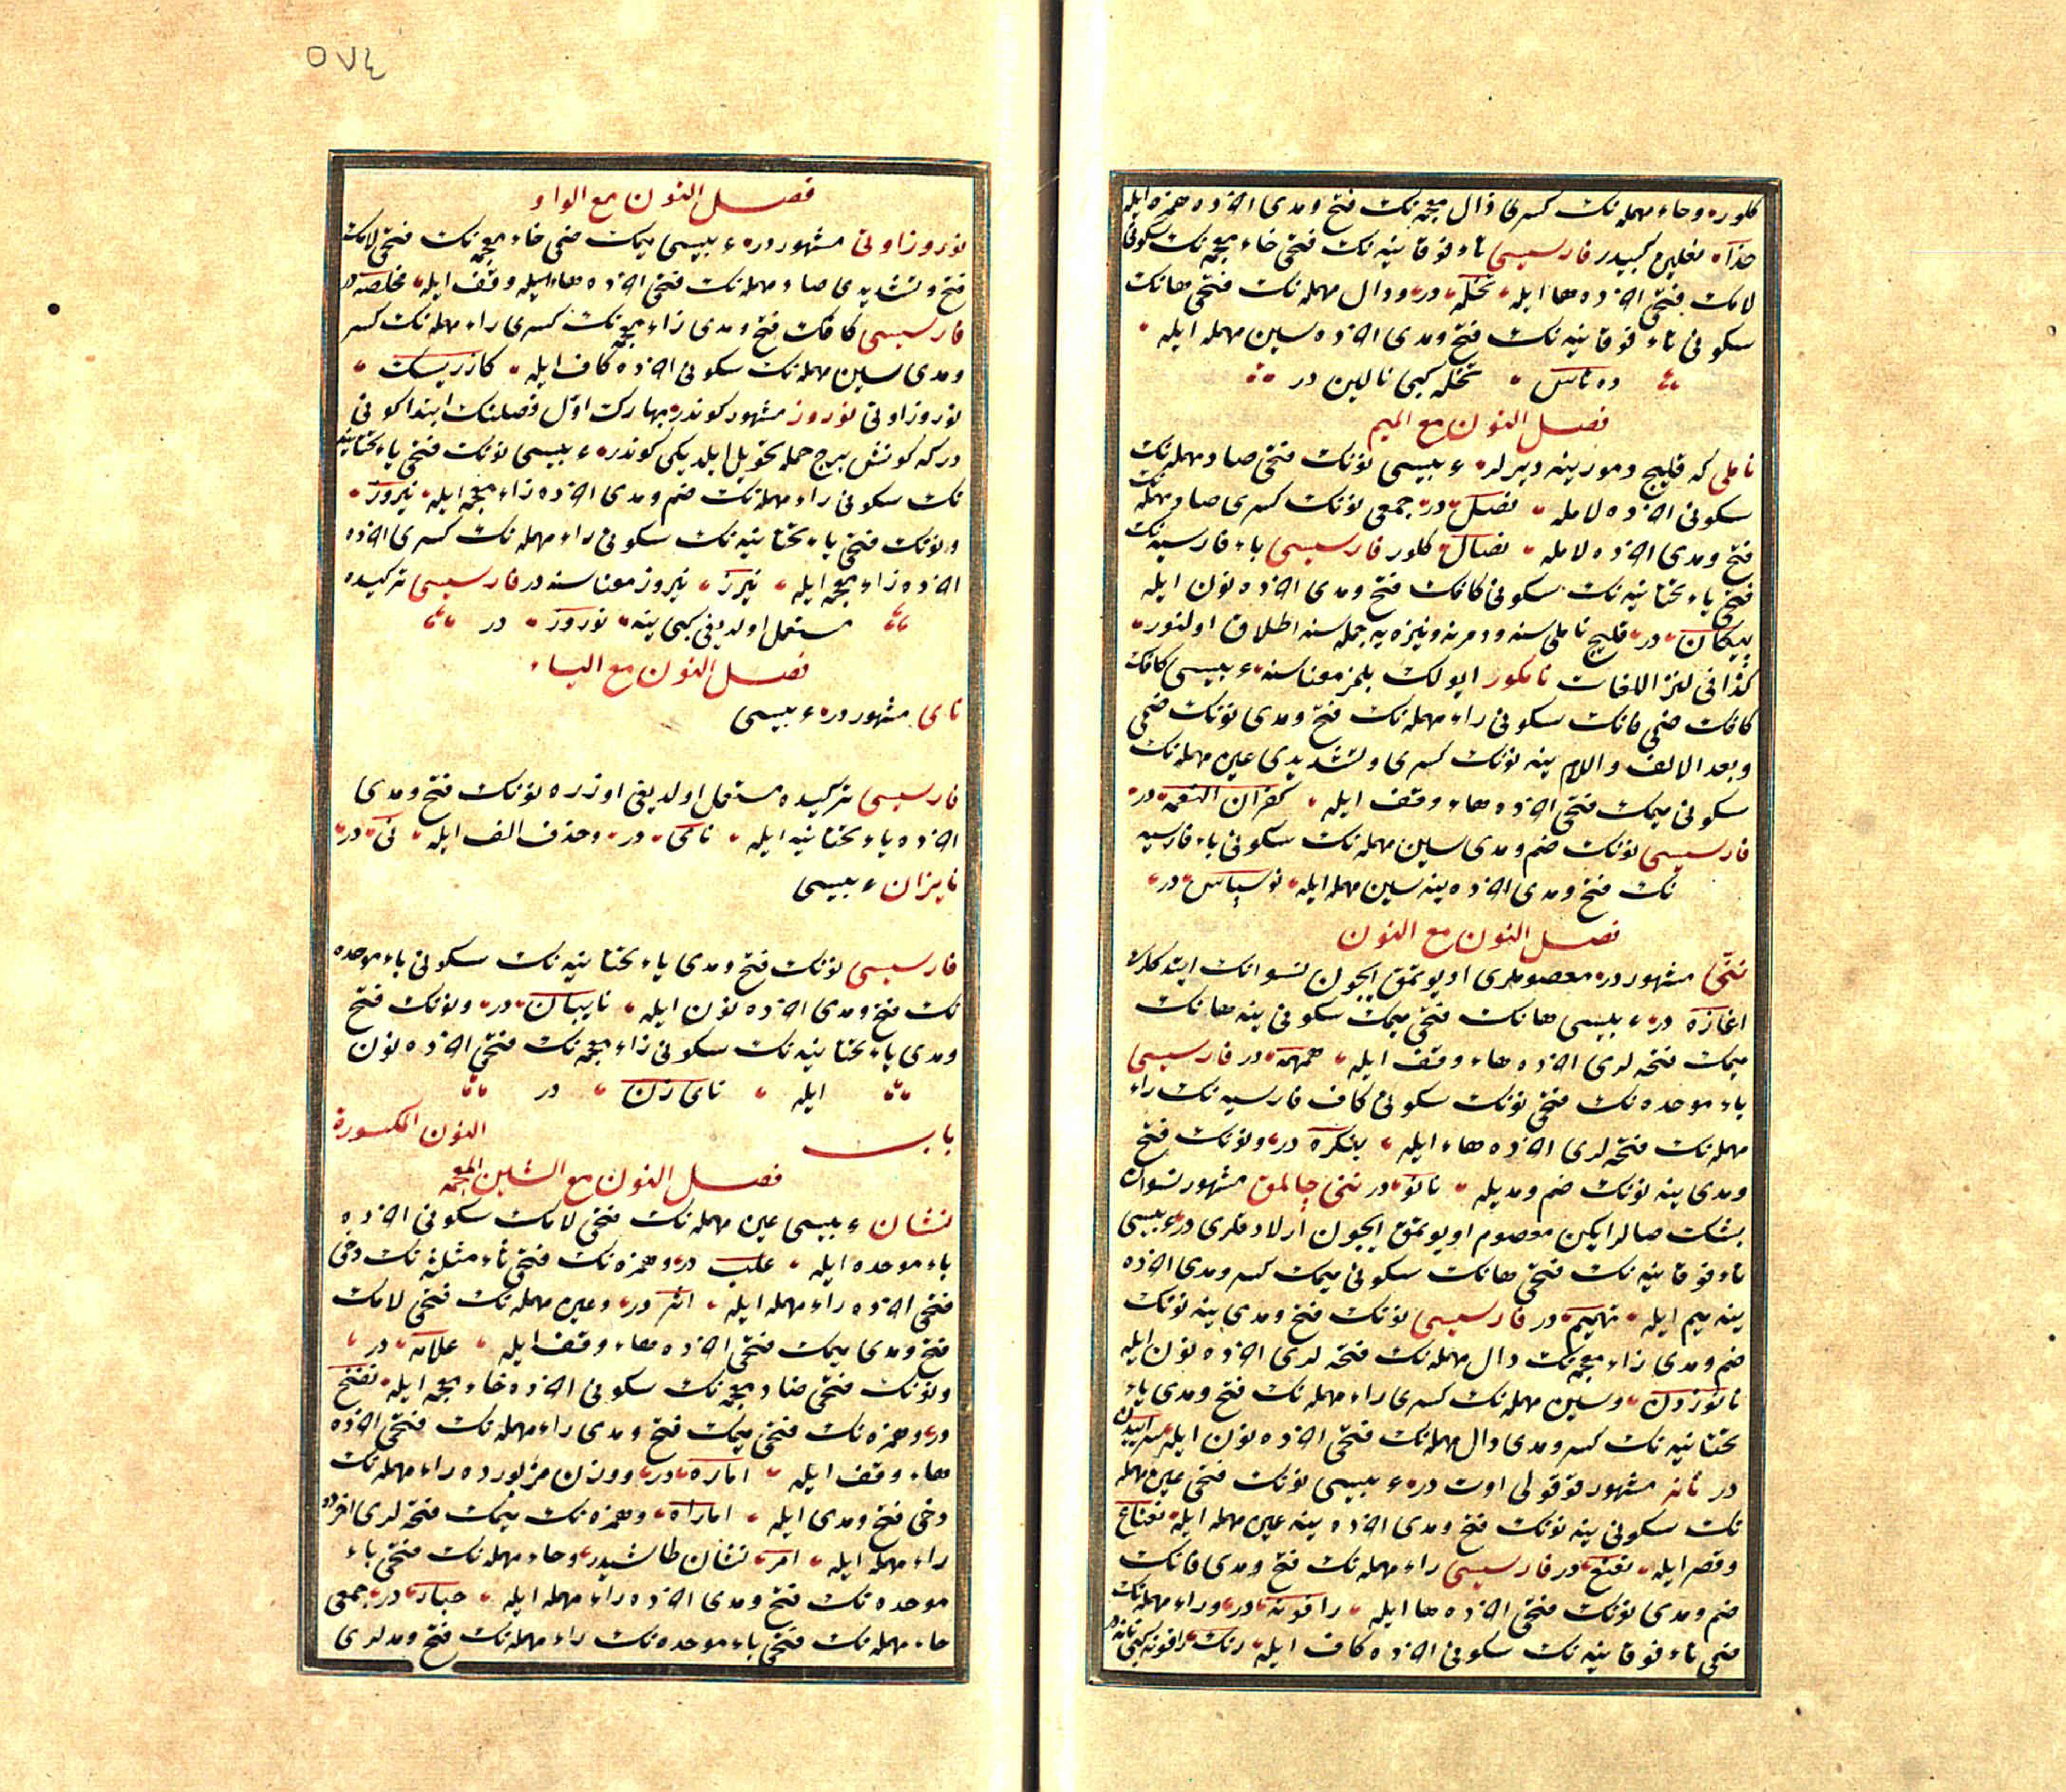 كلور وحاء مهمله نك كسرى ذال معجمه نك فتح ومدى آخرده همزه ايله
حذاء نعلين كبيدر فارسيسى تاء فوقانيه نك فتحى خاء معجمه نك سكونى
لامك فتحى آخرده ها ايله تخله در ودال مهمله نك فتحى هانك
سكونى تاء فوقانيه نك فتح ومدى آخرده سين مهمله ايله
ده تاس تخله كبى نالين در
فصل النون مع الميم
ناملى كه قليج دمورينه ديرلر عربيسى نونك فتحى صاد مهمله نك
سكونى آخرده لامله نصل در جمعى نونك كسرى صاد مهمله نك
فتح ومدى آخرده لامله نصال كلور فارسيسى باء فارسيه نك
فتحى ياء تحتانيه نك سكونى كافك فتح ومدى آخرده نون ايله
پيكان در قليج ناملى سنه ودمرنه ونيزه يه جمله سنه اطلاق اولنور
كذا فى لغز اللغات نامكور ايولك بلمز معناسنه عربيسى كافك
كافك ضمى فانك سكونى راء مهمله نك فتح ومدى نونك ضمى
وبعد الالف واللام ينه نونك كسرى وتشديدى عين مهمله نك
سكونى ميمك فتحى آخرده هاء وقف ايله كفران النعمه در
فارسيسى نونك ضم ومدى سين مهمله نك سكونى باء فارسيه
نك فتح ومدى آخرده ينه سين مهمله ايله نوسپاس در
فصل النون مع النون
ننّى مشهور در معصوملرى اويوتمق ايچون نسوانك ايتدكلرى
اغازه در عربيسى هانك فتحى ميمك سكونى ينه هانك
ميمك فتحه لرى آخرده هاء وقف ايله همهمه در فارسيسى
باء موحده نك فتحى نونك سكونى كاف فارسيه نك راء
مهمله نك فتحه لرى آخرده هاء ايله بنكره در ونونك فتح
ومدى ينه نونك ضم ومديله نانو در ننى چالمق مشهور نسوان
بشك صالرايكن معصوم اويوتمق ايچون ارلادقلرى در عربيسى
تاء فوقانيه نك فتحى هانك سكونى ميمك كسر ومدى آخرده
ينه ميم ايله تهميم در فارسيسى نونك فتح ومدى ينه نونك
ضم ومدى زاء معجمه نك دال مهمله نك فتحه لرى آخرده نون ايله
نانوزدن وسين مهمله نك كسرى راء مهمله نك فتح ومدى ياء
تحتانيه نك كسر ومدى دال مهمله نك فتحى آخرده نون ايله سراييدن
در نانه مشهور قوقولى اوت در عربيسى نونك فتحى عين مهمله
نك سكونى ينه نونك فتح ومدى آخرده ينه عين مهمله ايله نعناع
وقصر ايله نعنع در فارسيسى راء مهمله نك فتح ومدى فانك
ضم ومدى نونك فتحى آخرده ها ايله رافونه در وراء مهمله نك
فتحى تاء فوقانيه نك سكونى آخرده كاف ايله رتك رافونه كبى نانه در
٥٧٤
فصل النون مع الواو
نوروز اوتى مشهور در عربيسى ميمك ضمى خاء معجمه نك فتحى لامك
فتح وتشديدى صاد مهمله نك فتحى آخرده هاء ايله وقف ايله مخلصه در
فارسيسى كافك فتح ومدى زاء معجمه نك كسرى راء مهمله نك كسر
ومدى سين مهمله نك سكونى آخرده كاف ايله كازريسك
نوروز اوتى نوروز مشهور كوندر بهارك اول فصلنك ابتدا كونى
در كه كونش برج حمله تحويل ايلديكى كوندر عربيسى نونك فتحى ياء تحتانيه
نك سكونى راء مهمله نك ضم ومدى آخرده زاء معجمه ايله نيروز
ونونك فتحى ياء تحتانيه نك سكونى راء مهمله نك كسرى آخرده
آخرده زاء معجمه ايله نيرز نيروز معناسنه در فارسيسى تركيده
مستعمل اولديغى كبى ينه نوروز در
فصل النون مع الياء
ناى مشهور در عربيسى
فارسيسى تركيده مستعمل اولديغى اوزره نونك فتح ومدى
آخرده ياء تحتانيه ايله ناى در وحذف الف ايله نى در
نايزان عربيسى
فارسيسى نونك فتح ومدى ياء تحتانيه نك سكونى باء موحده
نك فتح ومدى آخرده نون ايله نايبان در ونونك فتح
ومدى ياء تحتانيه نك سكونى زاء معجمه نك فتحى آخرده نون
ايله ناى زن در
باب النون المكسورة
فصل النون مع الشين المعجمه
نشان عربيسى عين مهمله نك فتحى لامك سكونى آخرده
باء موحده ايله علب در وهمزه نك فتحى ثاء مثلثه نك دخى
فتحى آخرده راء مهمله ايله اثر در وعين مهمله نك فتحى لامك
فتح ومدى ميمك فتحى آخرده هاء وقف ايله علامه در
ونونك فتحى ضاد معجمه نك سكونى آخرده خاء معجمه ايله نضخ
در وهمزه نك فتحى ميمك فتح ومدى راء مهمله نك فتحى آخرده
هاء وقف ايله اماره در ووزن مزبورده راء مهمله نك
دخى فتح ومدى ايله اماراه وهمزه نك ميمك فتحه لرى آخرده
راء مهمله ايله امر نشان طاشيدر وحاء مهمله نك فتحى باء
موحده نك فتح ومدى آخرده راء مهمله ايله حبار در جمعى
حاء مهمله نك فتحى باء موحده نك راء مهمله نك فتح ومدلرى